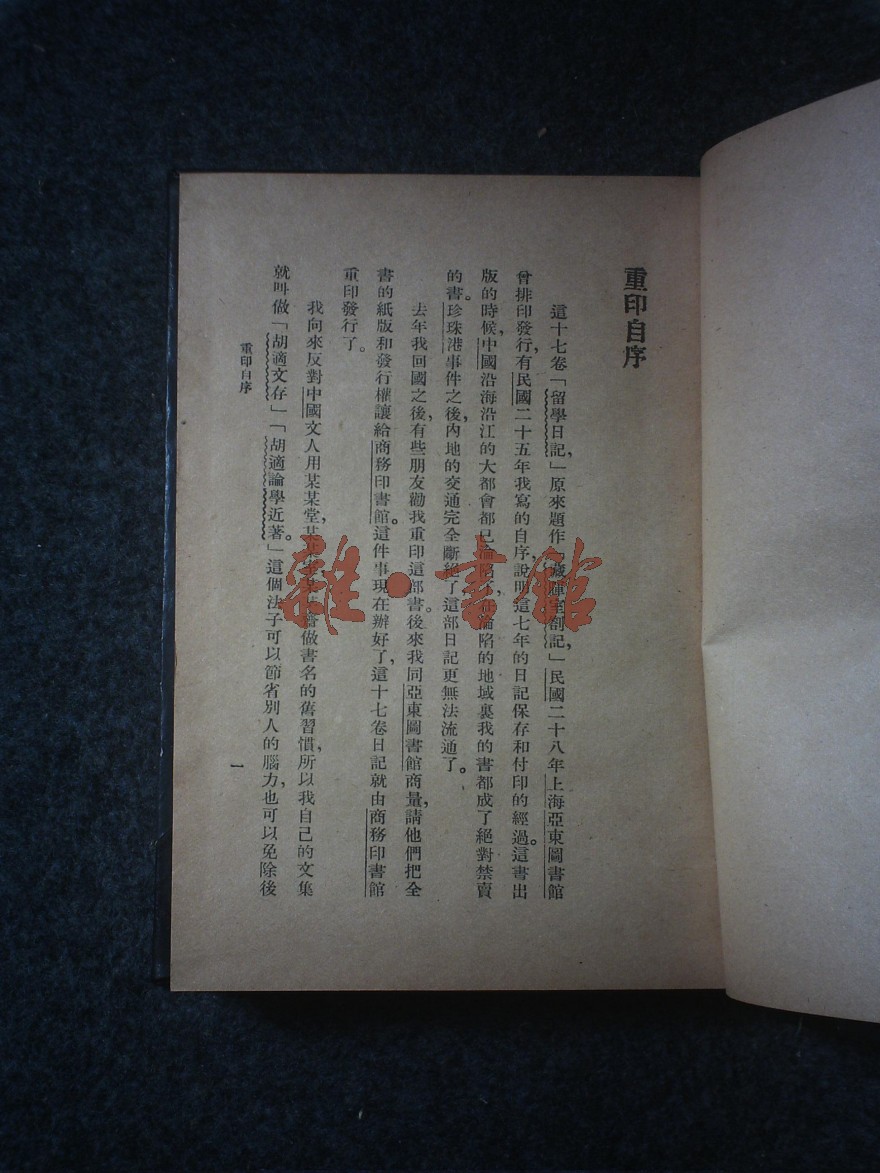 重印自序
這十七卷「留學日記，」原來題作「藏暉室劄記，」民國二十八年上海亞東圖書館
曾排印發行，有民國二十五年我寫的自序，說明這七年的日記保存和付印的經過。這書出
版的時候，中國沿海沿江的大都會都已淪陷了，在淪陷的地域裏我的書都成了絕對禁賣
的書。珍珠港事件之後，內地的交通完全斷絕了，這部日記更無法流通了。
去年我回國之後，有些朋友勸我重印這部書。後來我同亞東圖書館商量，請他們把全
書的紙版和發行權讓給商務印書館。這件事現在辦好了，這十七卷日記就由商務印書館
重印發行了。
我向來反對中國文人用某某堂，某某做書名的舊習慣，所以我自己的文集
就叫做「胡適文存」「胡適論學近著。」這個法子可以節省別人的腦力，也可以免除後
重印自序
一
雜·書館